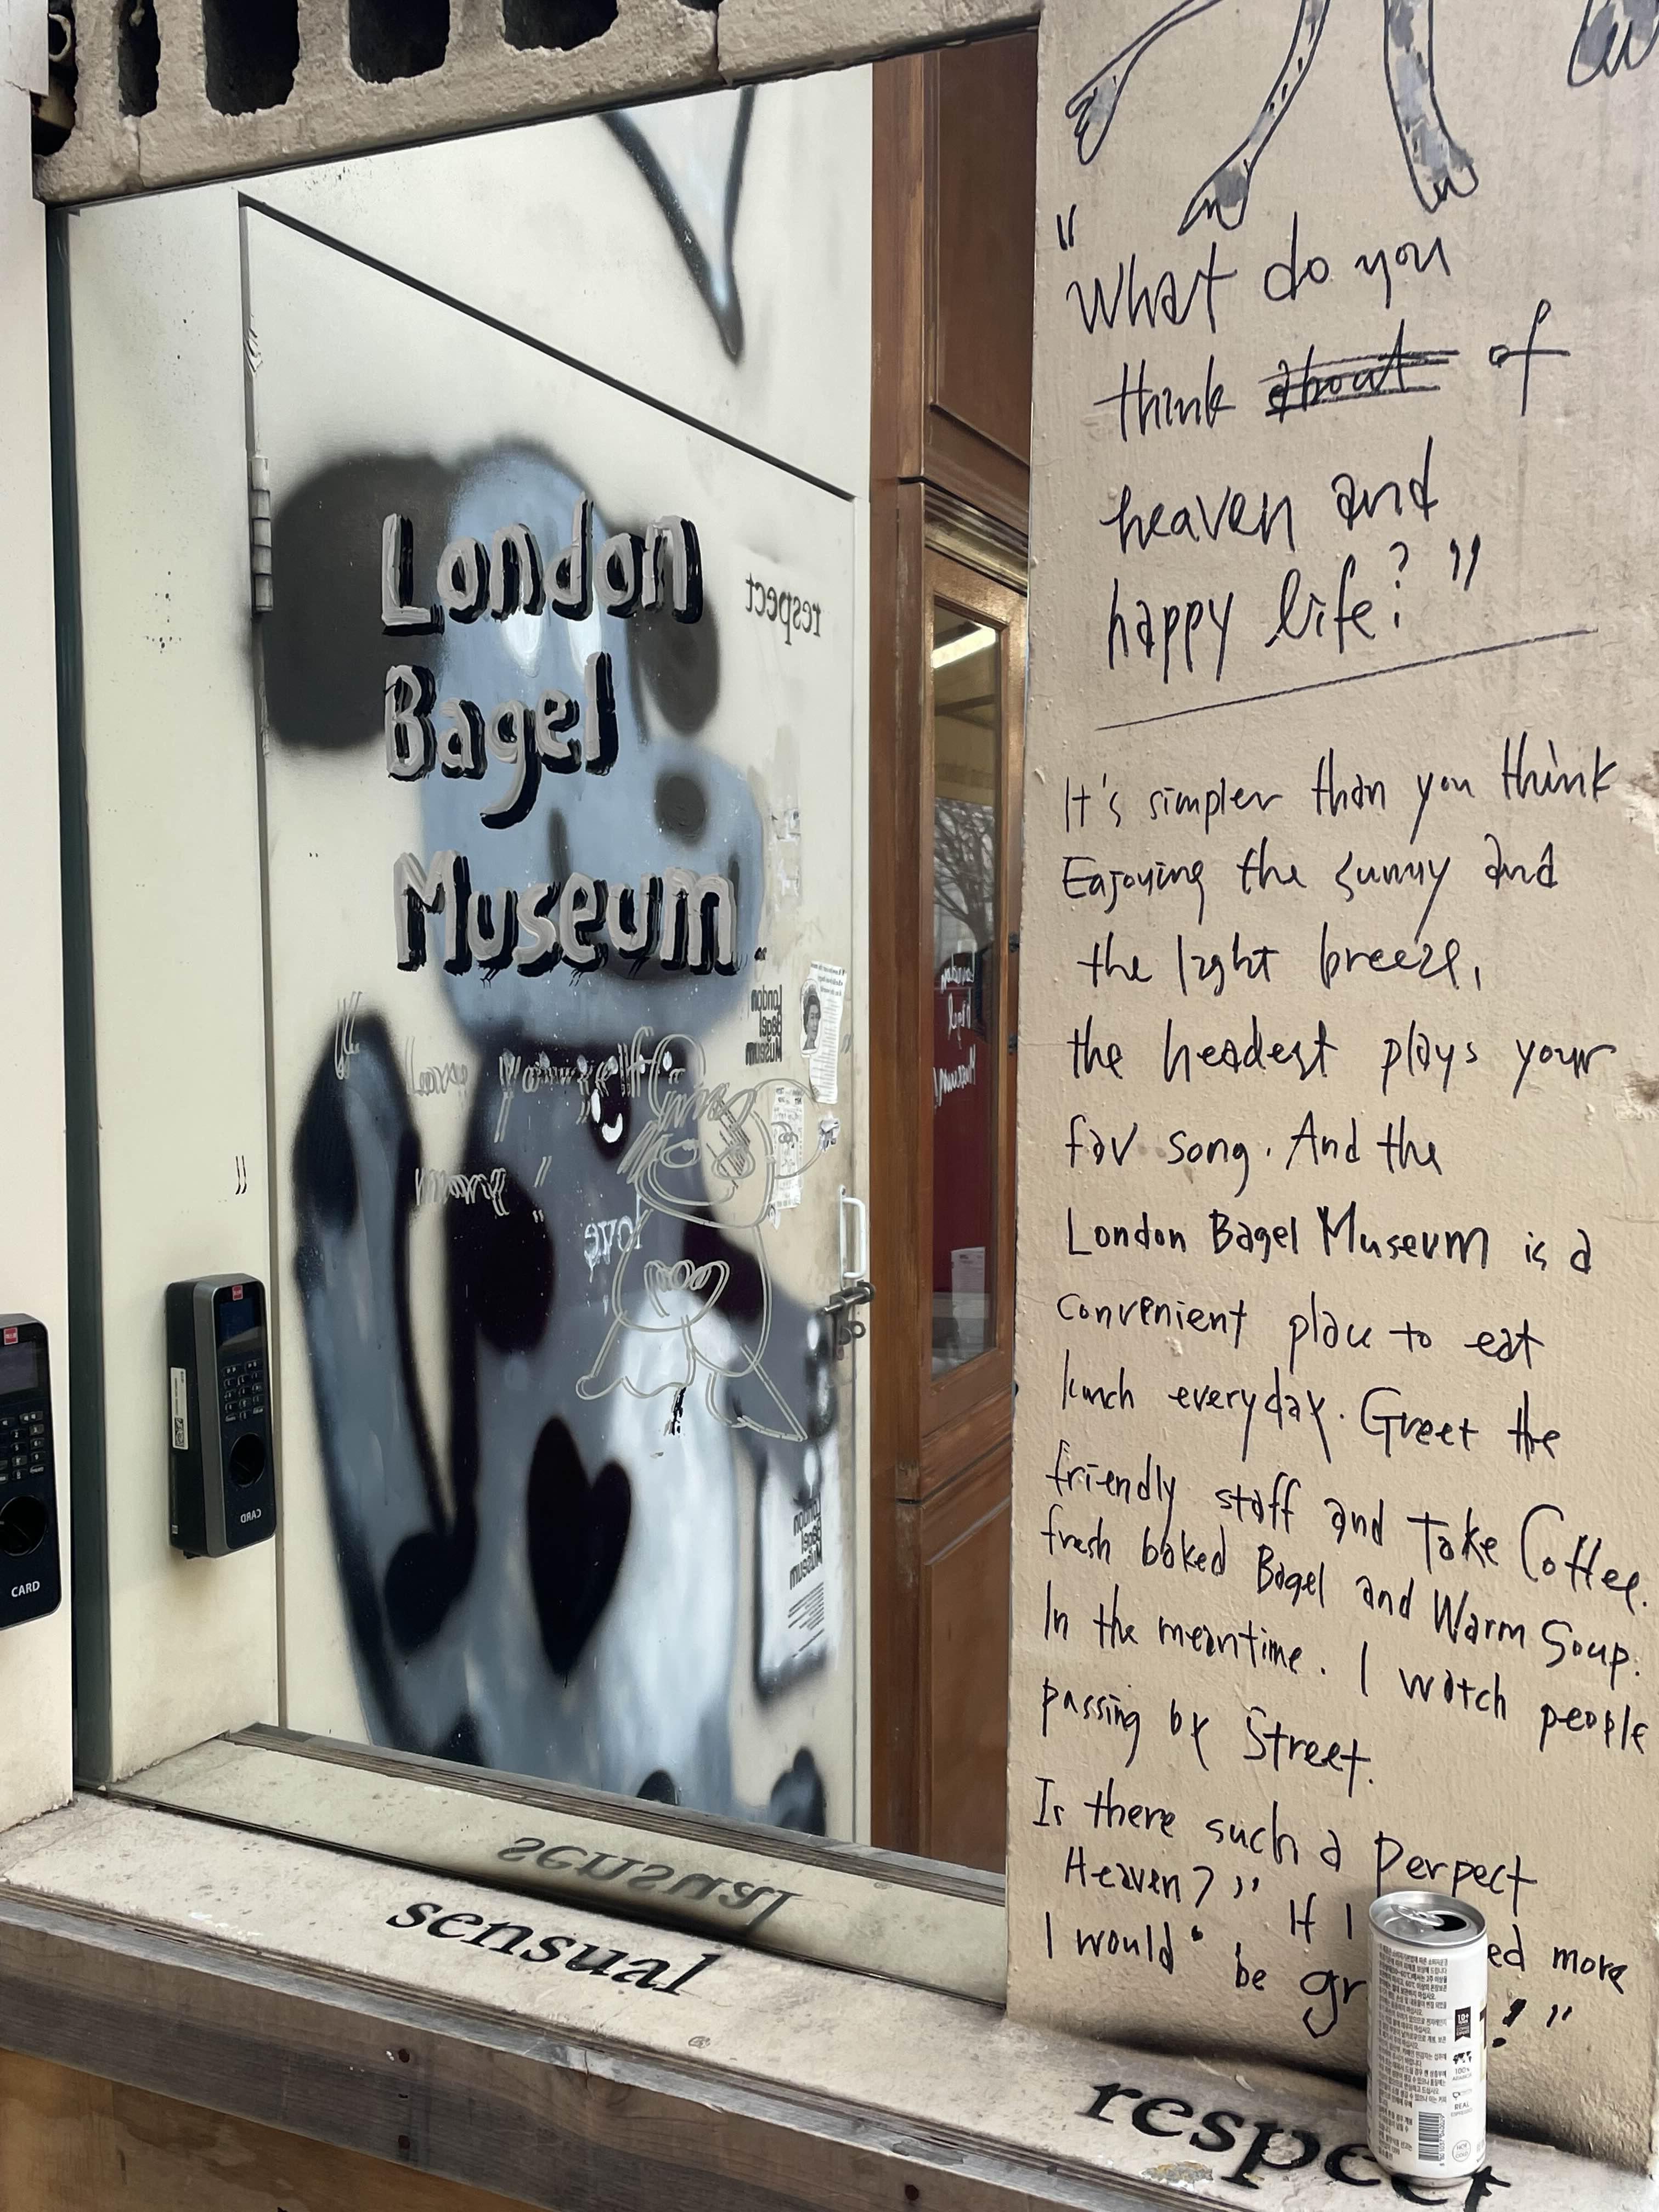 London
Bagel
Museum.
respect
London
Bagel
Museum
love
London
Bagel
Museum
CARD
CARD
sensual
sensual
"What do you
think about of
heaven and
happy life?"
It's simpler than you think
Enjoying the sunny and
the light breeze,
the headest plays your
fav song. And the
London Bagel Museum is a
convenient place to eat
lunch everyday. Greet the
friendly staff and Take Coffee.
fresh baked Bagel and Warm Soup.
In the meantime. I watch people
passing by Street.
Is there such a perpect
Heaven?" If I ed more
I would be gr !"
respect
100%
ARABICA
REAL
ESPRESSO